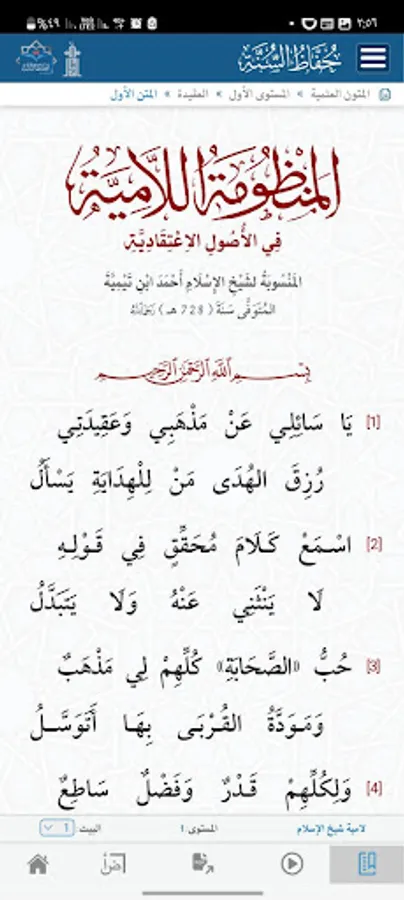 ٢:٥٦
%٤٩
حُفَّاظُ السُّنَّة
المتون العلمية » المستوى الأول » العقيدة » المتن الأول
المَنْظُومَةُ اللَّامِيَّةُ
فِي الأُصُولِ الِاعْتِقَادِيَّةِ
المَنْسُوبَةُ لشَيْخِ الإِسْلَامِ أَحْمَدَ ابْنِ تَيْمِيَّةَ
المُتَوَفَّى سَنَةَ (728 هـ) رَحِمَهُ اللَّهُ
بِسْمِ اللَّهِ الرَّحْمَنِ الرَّحِيمِ
[1] يَا سَائِلِي عَنْ مَذْهَبِي وَعَقِيدَتِي
رُزِقَ الهُدَى مَنْ لِلْهِدَايَةِ يَسْأَلُ
[2] اسْمَعْ كَلَامَ مُحَقِّقٍ فِي قَوْلِهِ
لَا يَنْثَنِي عَنْهُ وَلَا يَتَبَدَّلُ
[3] حُبُّ «الصَّحَابَةِ» كُلِّهِمْ لِي مَذْهَبٌ
وَمَوَدَّةُ القُرْبَى بِهَا أَتَوَسَّلُ
[4] وَلِكُلِّهِمْ قَدْرٌ وَفَضْلٌ سَاطِعٌ
لامية شيخ الإسلام المستوى 1 البيت 1